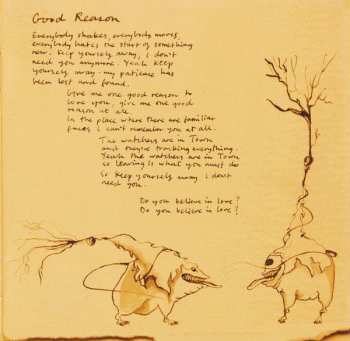 Good Reason
Everybody shakes, everybody moves,
everybody hates the start of something
new. Keep yourself away, I don't
need you anymore. Yeah keep
yourself away - my patience has
been lost and found.
Give me one good reason to
love you, give me one good
reason at all.
In the place where there are familiar
faces I can't remember you at all.
The watchers are in Town
and they're tracking everything.
Yeah the watchers are in Town,
so leaving is what you must do
So keep yourself away I don't
need you.
Do you believe in love?
Do you believe in love?